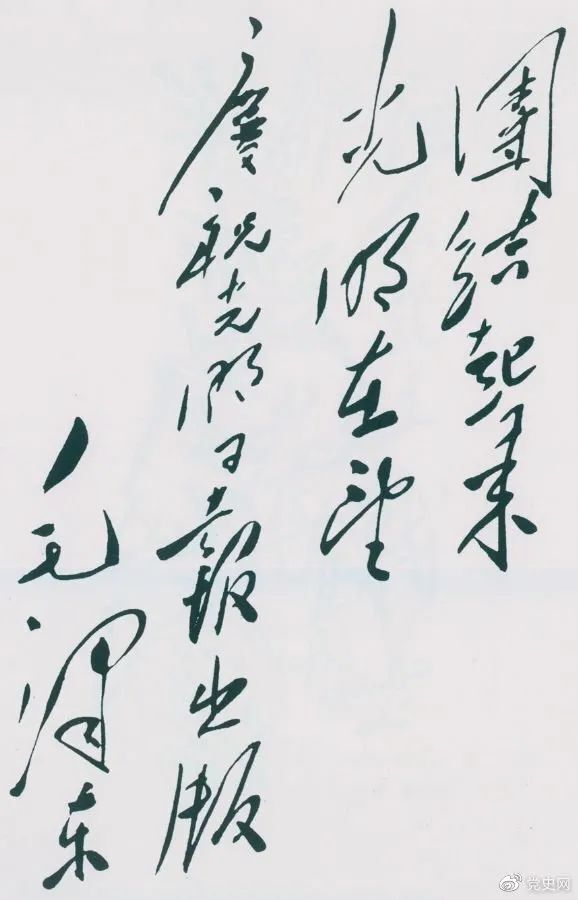 團结起来
光明在望
慶祝光明日報出版
毛澤东
党史网